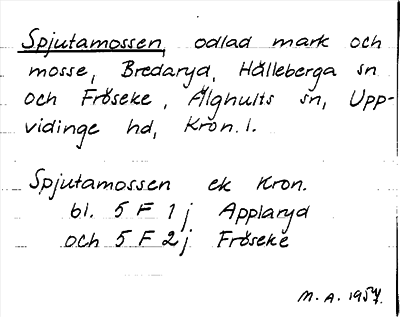 Spjutamossen, odlad mark och
mosse, Bredaryd, Hälleberga sn
och Fröseke, Älghults sn, Upp-
vidinge hd, Kron. l.
Spjutamossen ek Kron.
bl. 5 F 1 j Applaryd
och 5 F 2 j Fröseke
M. A.